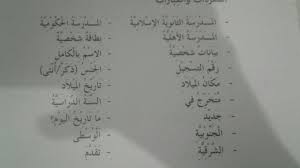 المفردات والعبارات
- المدرسة الثانوية الإسلامية - المدرسة الحكومية
- المدرسة الأهلية - بطاقة شخصية
- بيانات شخصية - الاسم بالكامل
- رقم التسجيل - الجنس (ذكر/أنثى)
- مكان الميلاد - تاريخ الميلاد
- متخرج في - السنة الدراسية
- جديد - ما تاريخ اليوم؟
- الجنوبية - الوسطى
- الشرقية - تقدم